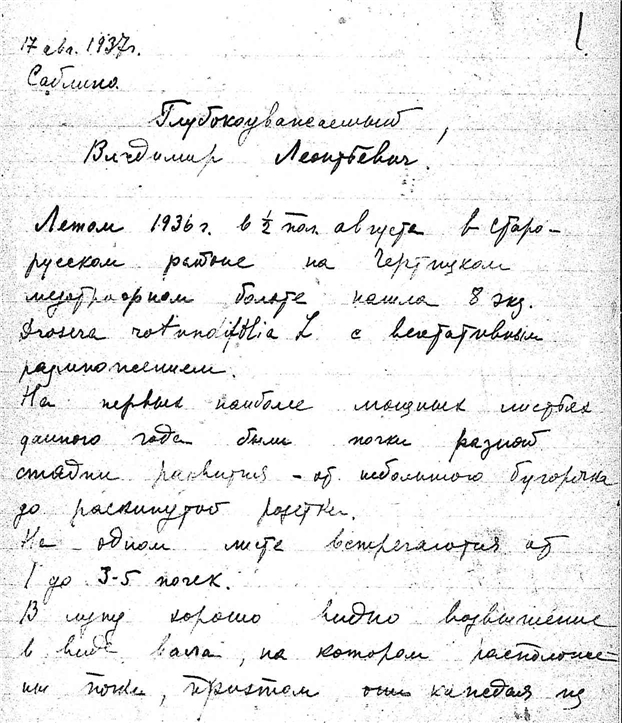 1.
17 авг. 1937г.
Саблино.
Глубокоуважаемый,
Владимир Леонтьевич.
Летом 1936 г. в ½ пол. августа в Старо-
русском районе на Чертицком
мезотрофном болоте нашла 8 экз.
Drosera rotundifolia L с вегетативным
размножением.
На первых наиболее мощных листьях
данного года были почки разной
стадии развития – от небольшого бугорочка
до раскинутой розетки.
На одном листе встречаются от
1 до 3-5 почек.
В лупу хорошо видно возвышение
в виде вала, на котором расположе-
ны почки, притом они каждая из